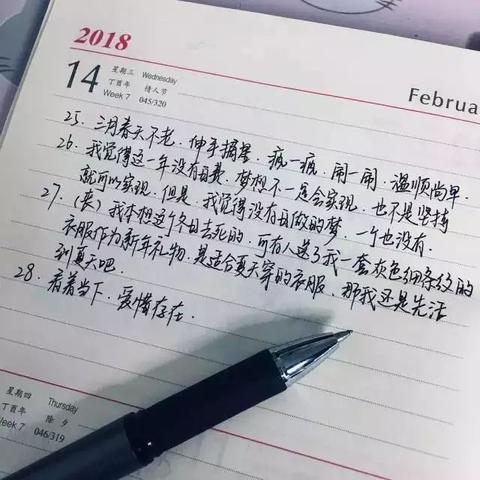 2018
14
星期三 Wednesday
丁酉年 情人节
Week 7 045/320
Februa
25. 三月春天不老. 伸手摘星. 疯一疯. 闹一闹. 温顺尚早.
26. 我觉得这一年没有白费. 梦想不一定会实现. 也不是坚持
就可以实现. 但是. 我觉得没有白做的梦. 一个也没有.
27. (丧) 我本想这个冬日去死的. 可有人送了我一套灰色细条纹的
衣服作为新年礼物. 是适合夏天穿的衣服. 那我还是先活
到夏天吧.
28. 看着当下. 爱惜存在.
星期四 Thursday
丁酉年 除夕
Week 7 046/319